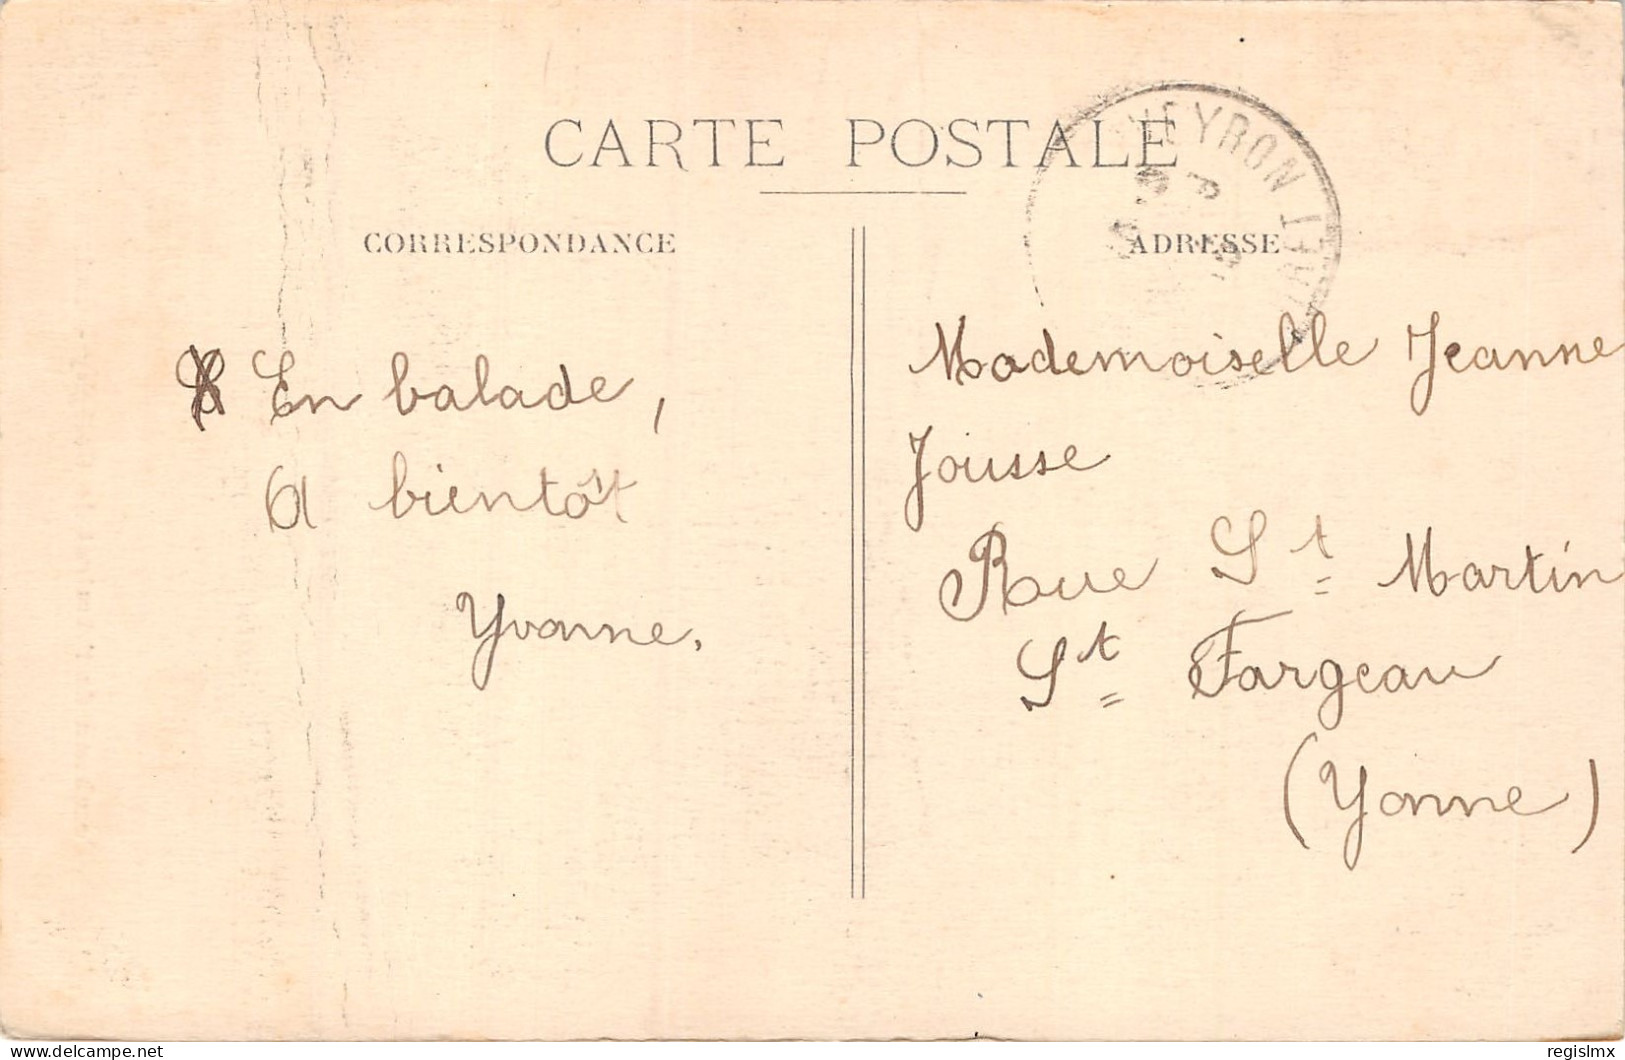 CARTE POSTALE
CORRESPONDANCE
En balade,
A bientôt
Yvonne.
ADRESSE
Mademoiselle Jeanne
Jousse
Rue St Martin
St Fargeau
(Yonne)
delcampe.net
regislmx